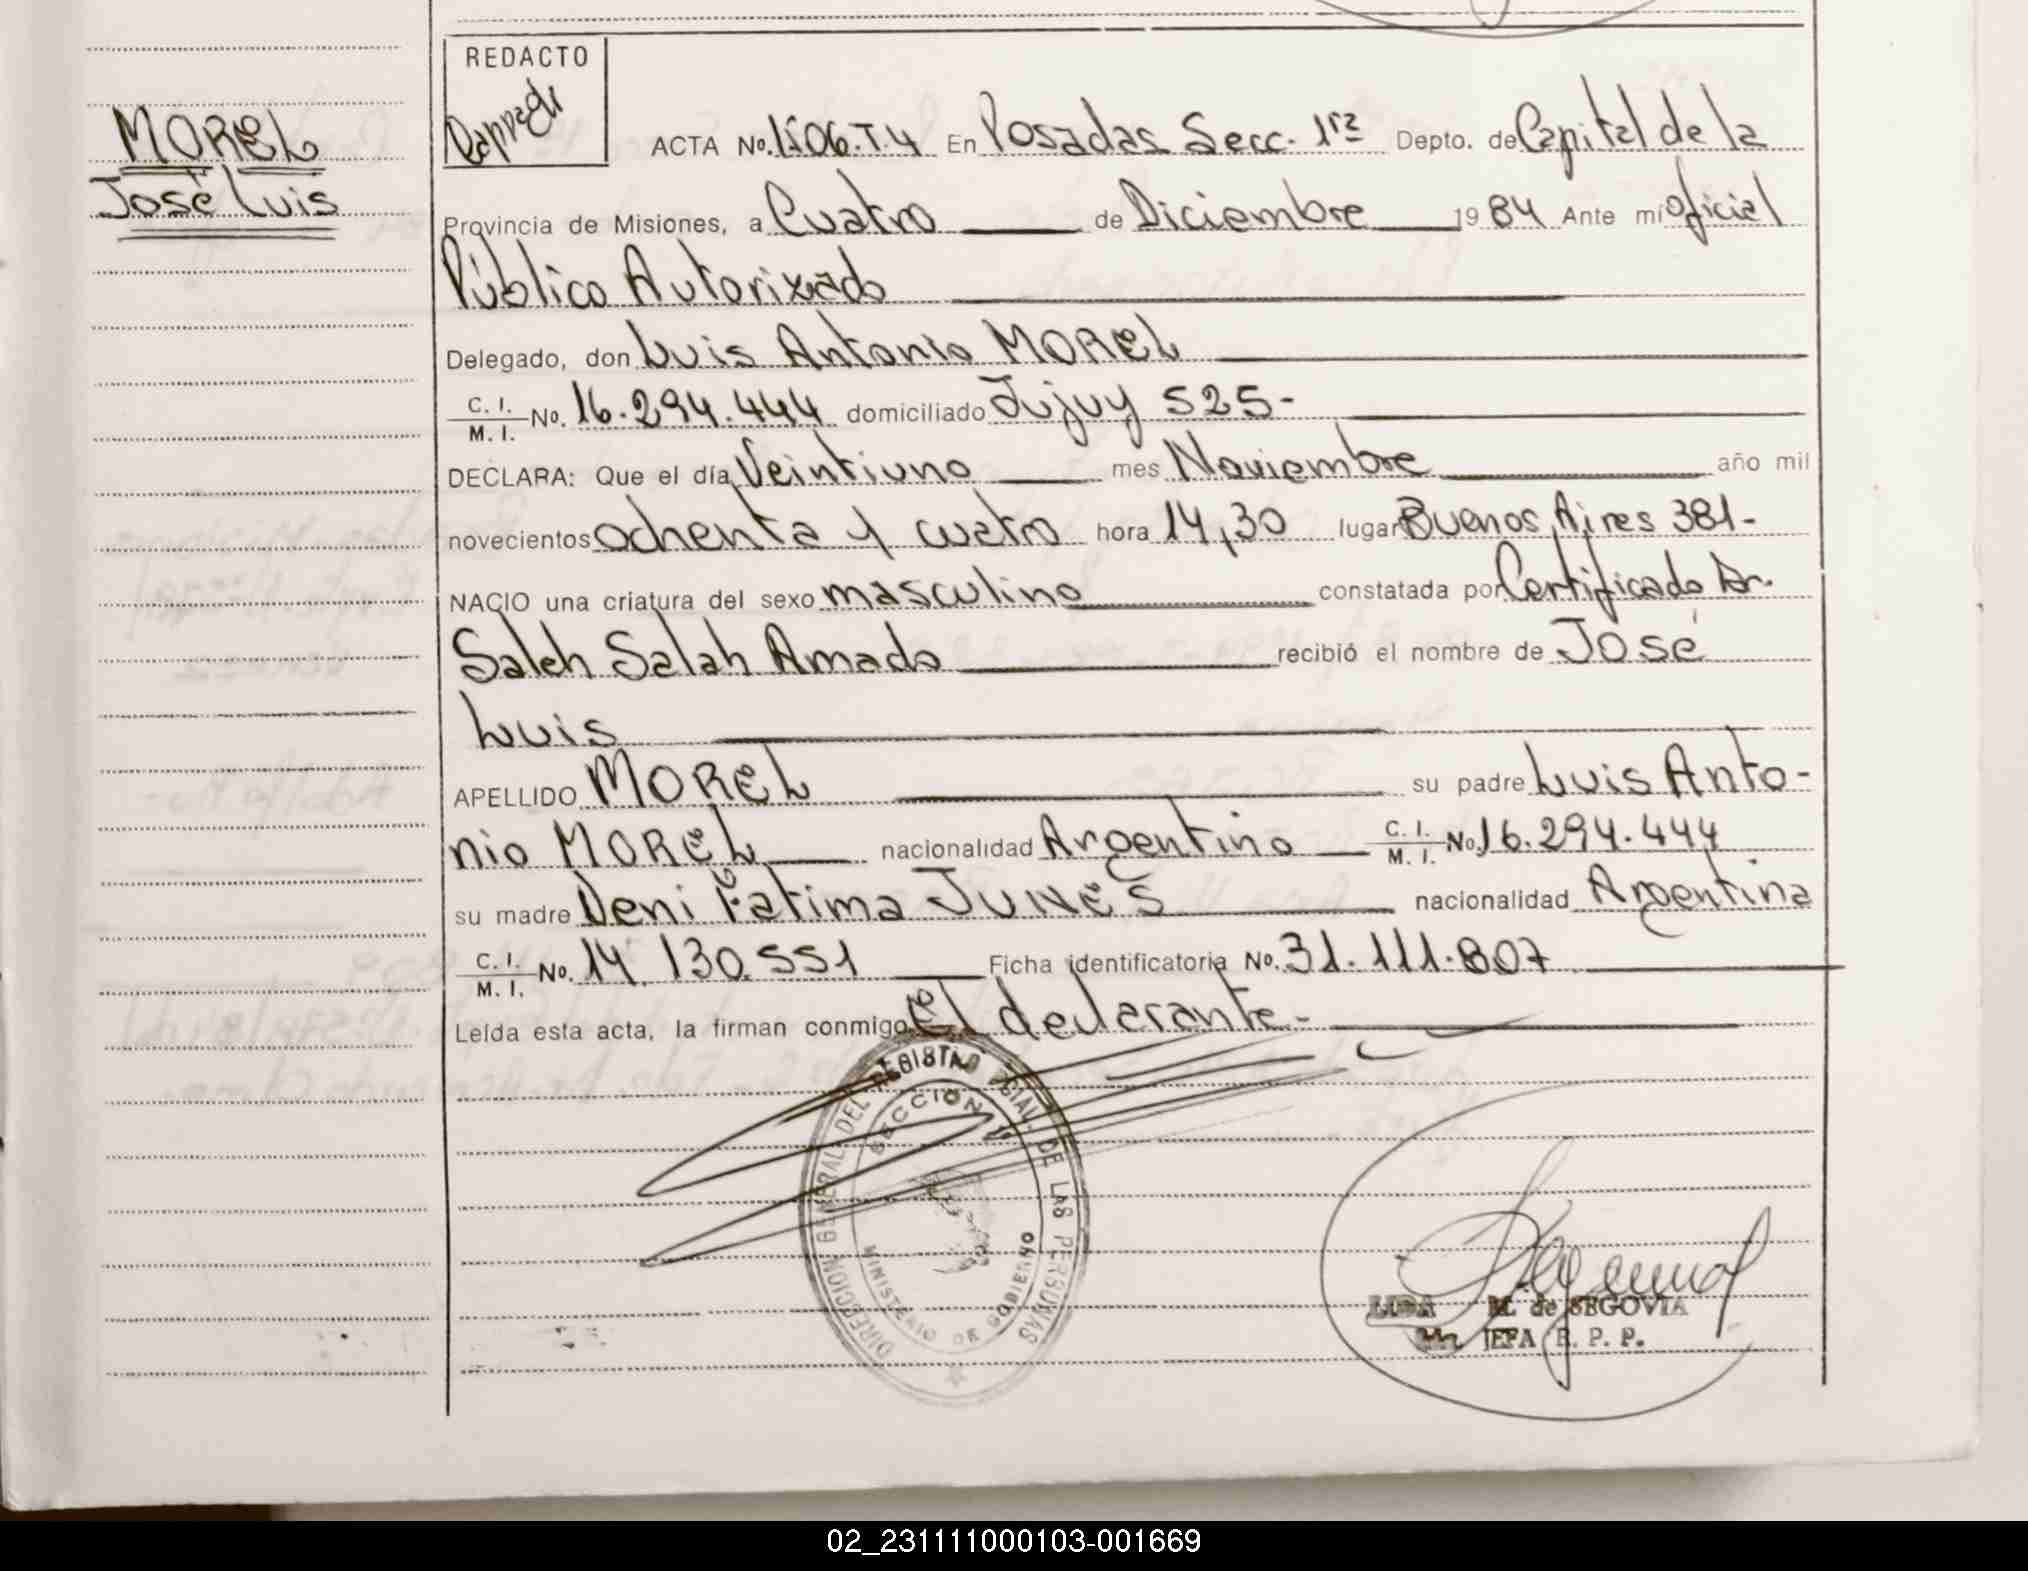 MOREL
José Luis
REDACTO
ACTA No. 1i06.T.4 En Posadas Secc. 1ra Depto. de Capital de la
Provincia de Misiones, a Cuatro de Diciembre 1984 Ante mí oficial
Público Autorizado
Delegado, don Luis Antonio MOREL
C. I.
M. I. No. 16.294.444 domiciliado Jujuy 525-
DECLARA: Que el día Veintiuno mes Noviembre año mil
novecientos ochenta y cuatro hora 14,30 lugar Buenos Aires 381-
NACIO una criatura del sexo masculino constatada por Certificado Dr.
Saleh Salah Amado recibió el nombre de José
Luis
APELLIDO MOREL su padre Luis Anto-
nio MOREL nacionalidad Argentino C. I. M. I. No. 16.294.444
su madre Deni Fatima JUNES nacionalidad Argentina
C. I.
M. I. No. 14.130.551 Ficha identificatoria No. 31.111.807
Leída esta acta, la firman conmigo El declarante-
DIRECCION GENERAL DEL REGISTRO PCIAL. DE LAS PERSONAS
SECCION 1ª
MINISTERIO DE GOBIERNO
LIDA M. de SEGOVIA
JEFA R. P. P.
02_231111000103-001669